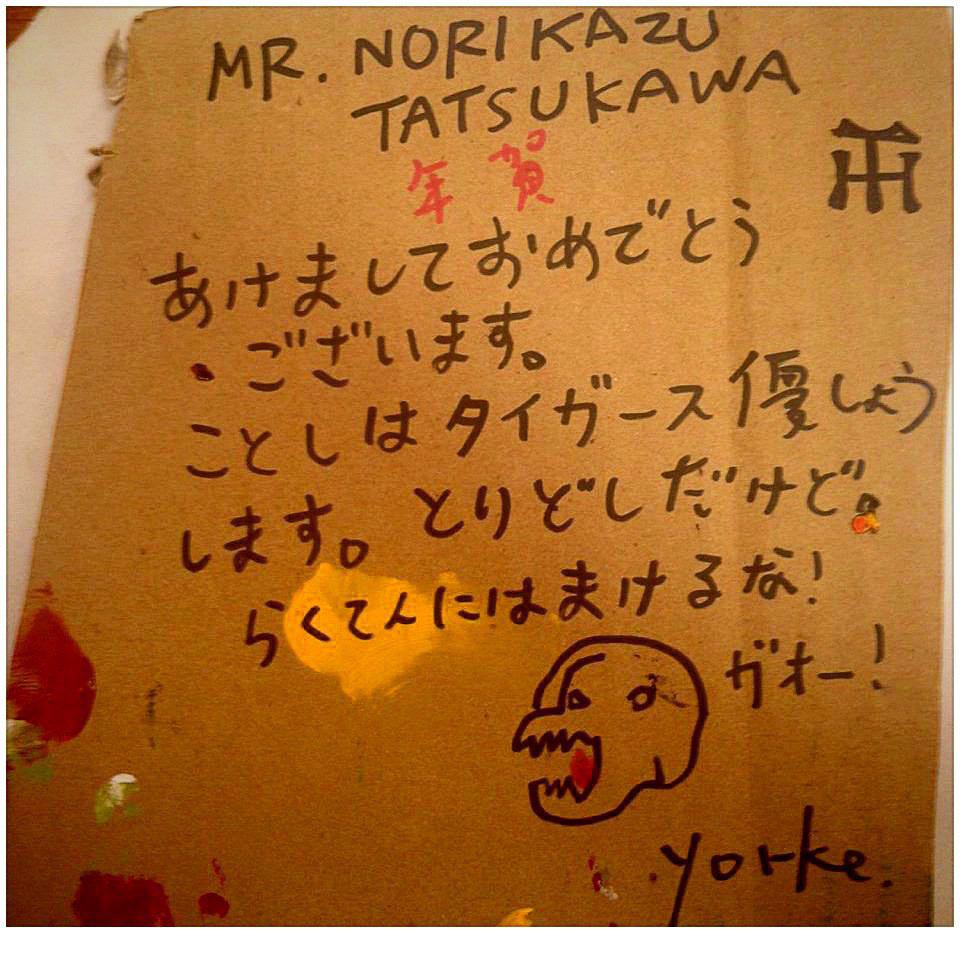 MR. NORIKAZU
TATSUKAWA
年賀
あけましておめでとう
ございます。
ことしはタイガース優しょう
します。とりどしだけど。
らくてんにはまけるな!
ガオー!
yorke.